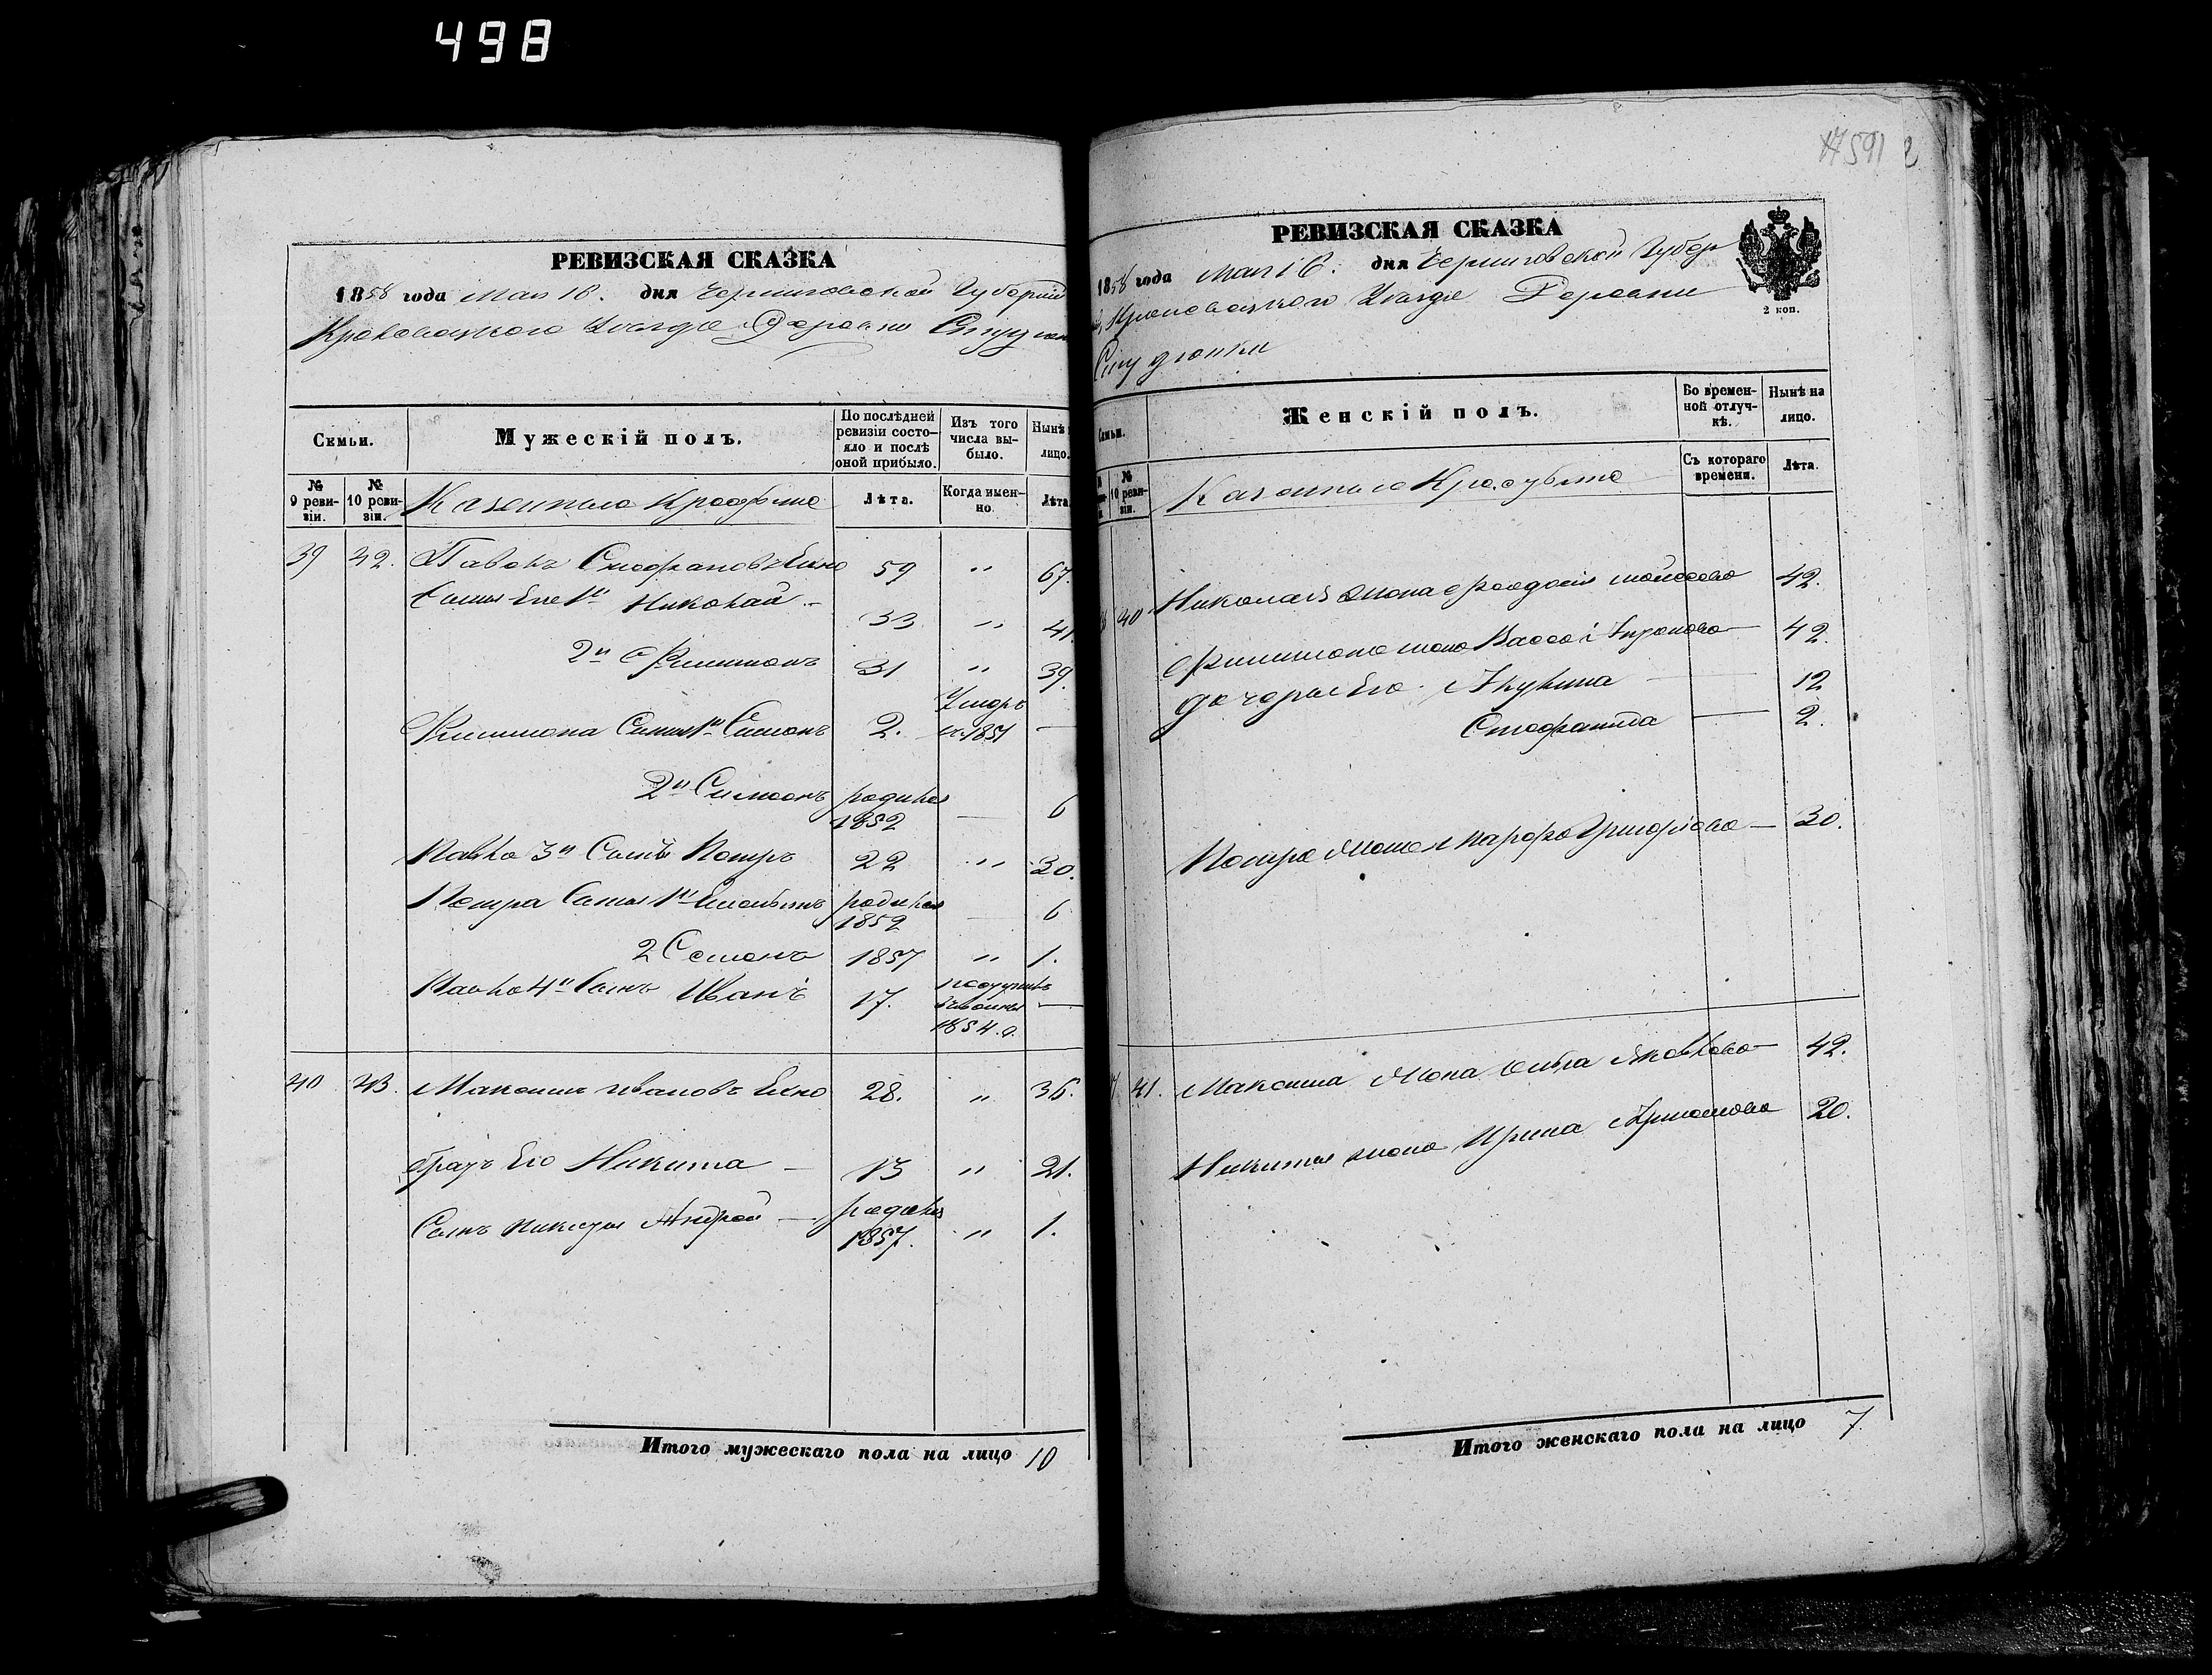 498
РЕВИЗСКАЯ СКАЗКА
1858 года Мая 16. дня Черниговской Губерніи
Кролевецкого Уезда Деревни
Семьи.
Мужескій полъ.
По послѣдней ревизіи состояло и послѣ оной прибыло.
Изъ того числа выбыло.
Нынѣ лицо.
№ 9 ревизіи.
№ 10 ревизіи.
Лѣта.
Когда именно
Лѣта
39 42. Павелъ 59 " 67.
Сыны Его 1й Николай 33 " 41
2й Филимонъ 31 " 39.
Филимона Сыны 1й Симонъ 2. Умеръ 1851 —
2й Симеонъ родился 1852 — 6
Павла 3й Сынъ Петръ 22 " 30.
Петра Сыны 1й родился 1852 — 6
2 Семенъ 1857 " 1.
Павла 4й Сынъ Иванъ 17. 1854. —
40 43. Максимъ Ивановъ 28. " 36.
братъ Его Никита — 13 " 21.
Сынъ Никиты Андрей — родился 1857. " 1.
Итого мужескаго пола на лицо 10
591
РЕВИЗСКАЯ СКАЗКА
1858 года Мая 16. дня Черниговской Губер
Кролевецкого Уезда Деревни
2 коп.
Семьи.
Женскій полъ.
Во временной отлучкѣ.
Нынѣ на лицо.
10 ревизіи.
Съ котораго времени.
Лѣта.
40 Николая жена Феодосія 42.
Филимона жена Васса 42.
дочери Его Акулина — 12
Стефанида — 2.
Петра жена Марфа — 30.
41. Максима жена Яковлева — 42.
Никиты жена Ирина 20.
Итого женскаго пола на лицо 7